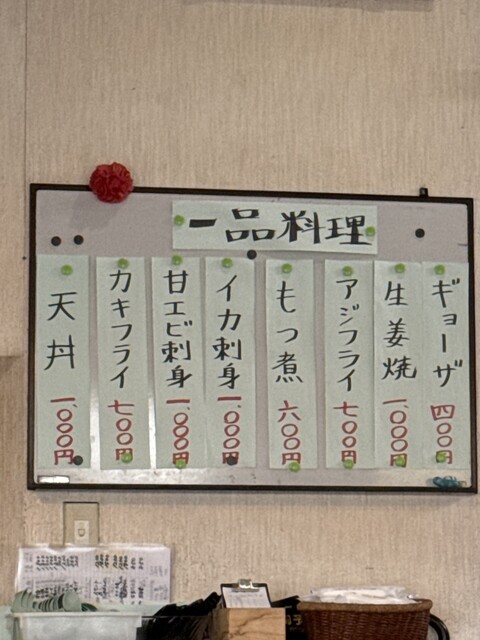 一品料理
ギョーザ 四〇〇円
生姜焼 一、〇〇〇円
アジフライ 七〇〇円
もつ煮 六〇〇円
イカ刺身 一、〇〇〇円
甘エビ刺身 一、〇〇〇円
カキフライ 七〇〇円
天丼 一、〇〇〇円